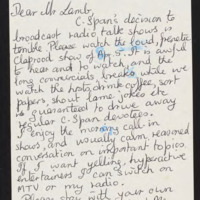 Dear Mr Lamb,
C-Span's decision to
broadcast radio talk shows is
terrible. Please watch the loud, frenetic
claptrap show of 5. It is awful
to hear and to watch, and the
long commercials, breaks while we
watch the hosts drink coffee, sort
papers, shout lame jokes etc
is guaranteed to drive away
regular C-Span devotees.
I enjoy the morning call in
shows, and usually calm, reasoned
conversation on important topics.
If I want yelling, hyperactive
entertainers I can switch on
MTV or my radio.
Please stay with your own